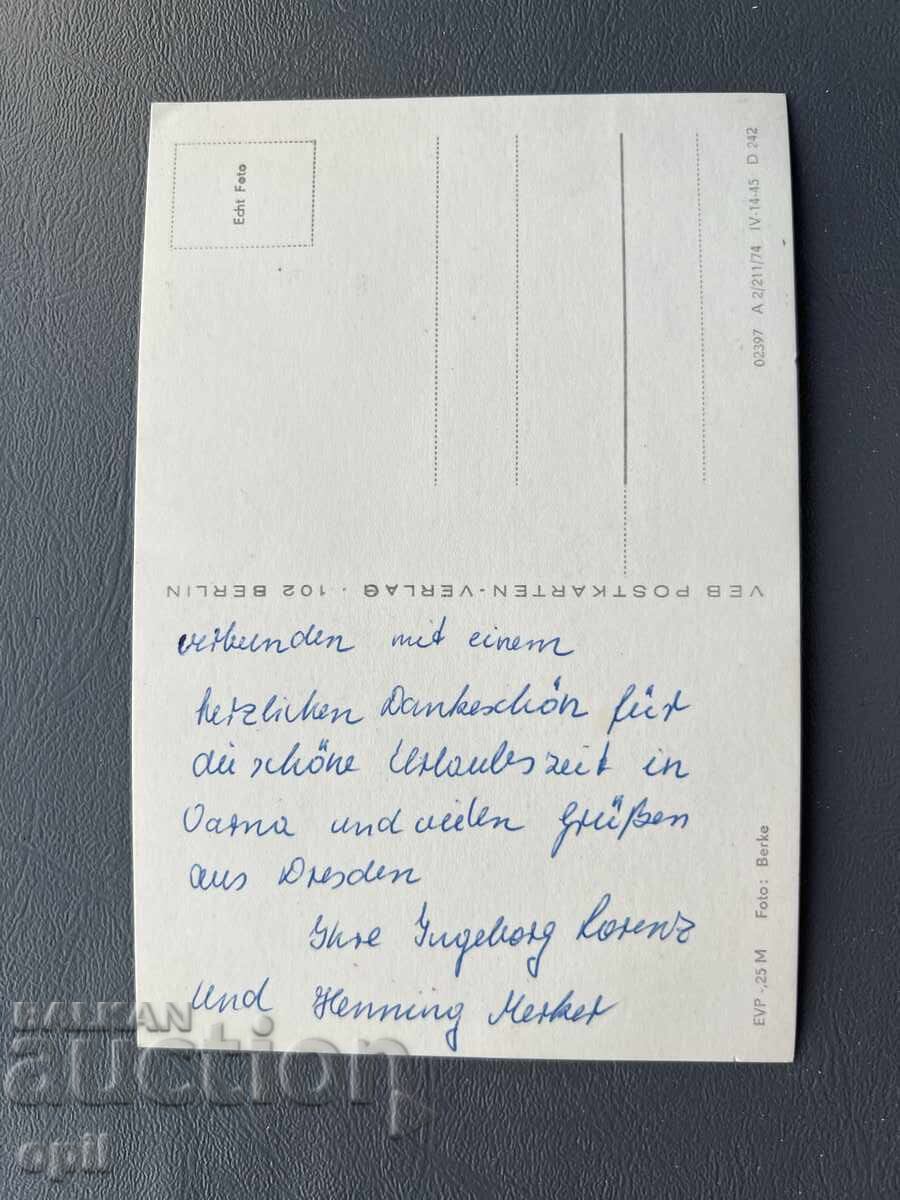 Echt Foto
02397 A 2/211/74 IV-14-45 D 242
VEB POSTKARTEN-VERLAG · 102 BERLIN
verbunden mit einem
herzlichen Dankeschön für
die schöne Urlaubszeit in
Varna und vielen Grüßen
aus Dresden
Ihre Ingeborg Lorenz
und Henning Merker
EVP -,25 M Foto: Berke
BALKAN
auction
opil